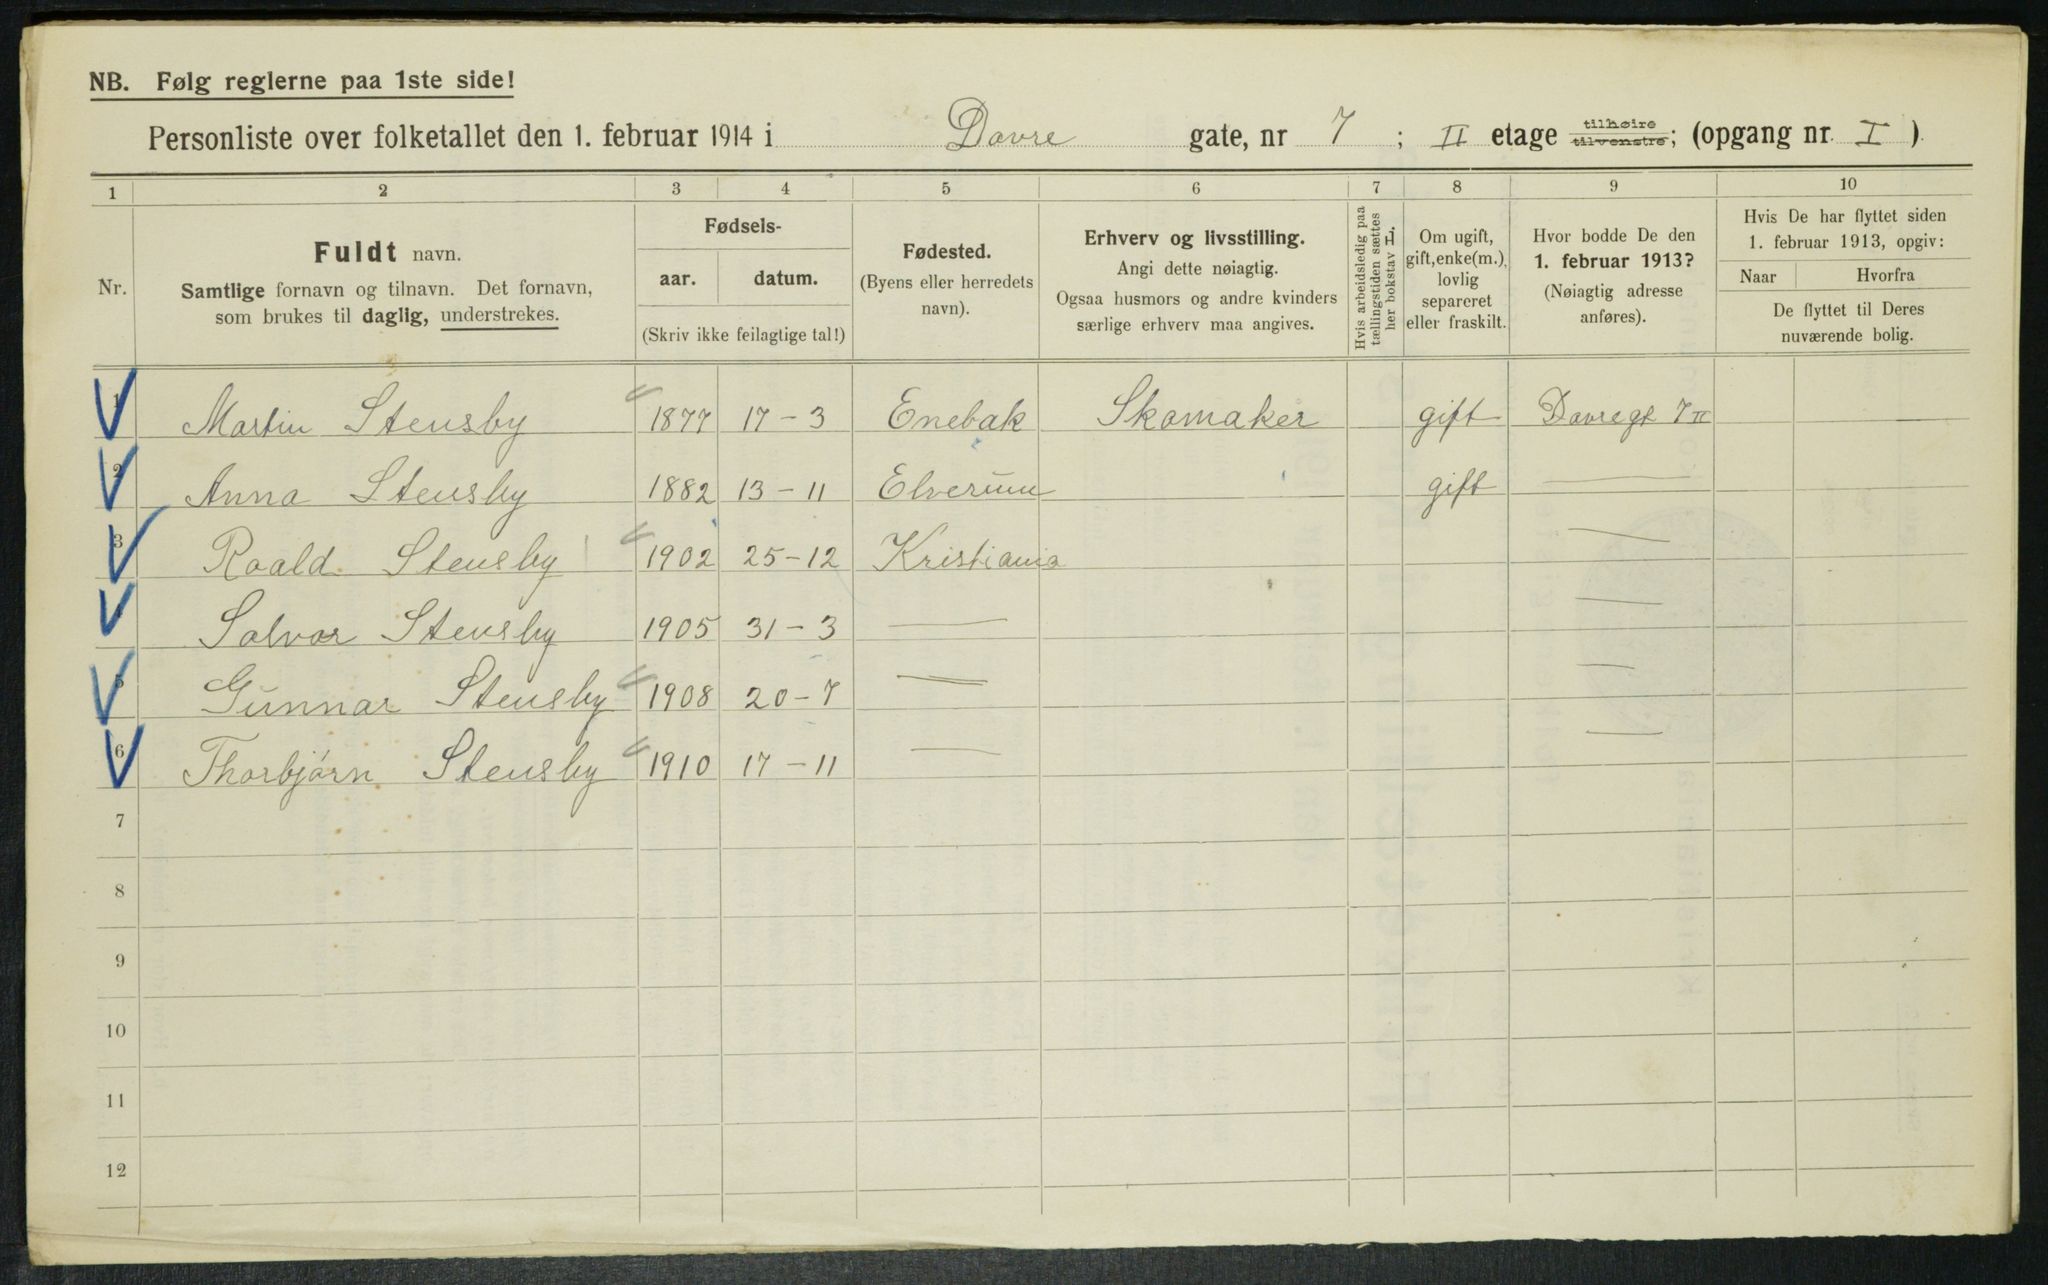 NB. Følg reglerne paa 1ste side!
Personliste over folketallet den 1. februar 1914 i Dovre gate, nr 7 ; II etage tilhøire tilvenstre; (opgang nr. I )
1 2 3 4 5 6 7 8 9 10
Nr.
Fuldt navn.
Samtlige fornavn og tilnavn. Det fornavn,
som brukes til daglig, understrekes.
Fødsels-
aar. datum.
(Skriv ikke feilagtige tal!)
Fødested.
(Byens eller herredets
navn).
Erhverv og livsstilling.
Angi dette nøiagtig.
Ogsaa husmors og andre kvinders
særlige erhverv maa angives.
Hvis arbeidsledig paa
tællingstiden sættes
her bokstav L.
Om ugift,
gift, enke(m.),
lovlig
separeret
eller fraskilt.
Hvor bodde De den
1. februar 1913?
(Nøiagtig adresse
anføres).
Hvis De har flyttet siden
1. februar 1913, opgiv:
Naar Hvorfra
De flyttet til Deres
nuværende bolig.
1 Martin Stensby 1877 17-3 Enebak Skomaker gift Dovregt 7 II
2 Anna Stensby 1882 13-11 Elverum gift —
3 Roald Stensby 1902 25-12 Kristiania —
4 Solvor Stensby 1905 31-3 — —
5 Gunnar Stensby 1908 20-7 — —
6 Thorbjørn Stensby 1910 17-11 — —
7
8
9
10
11
12